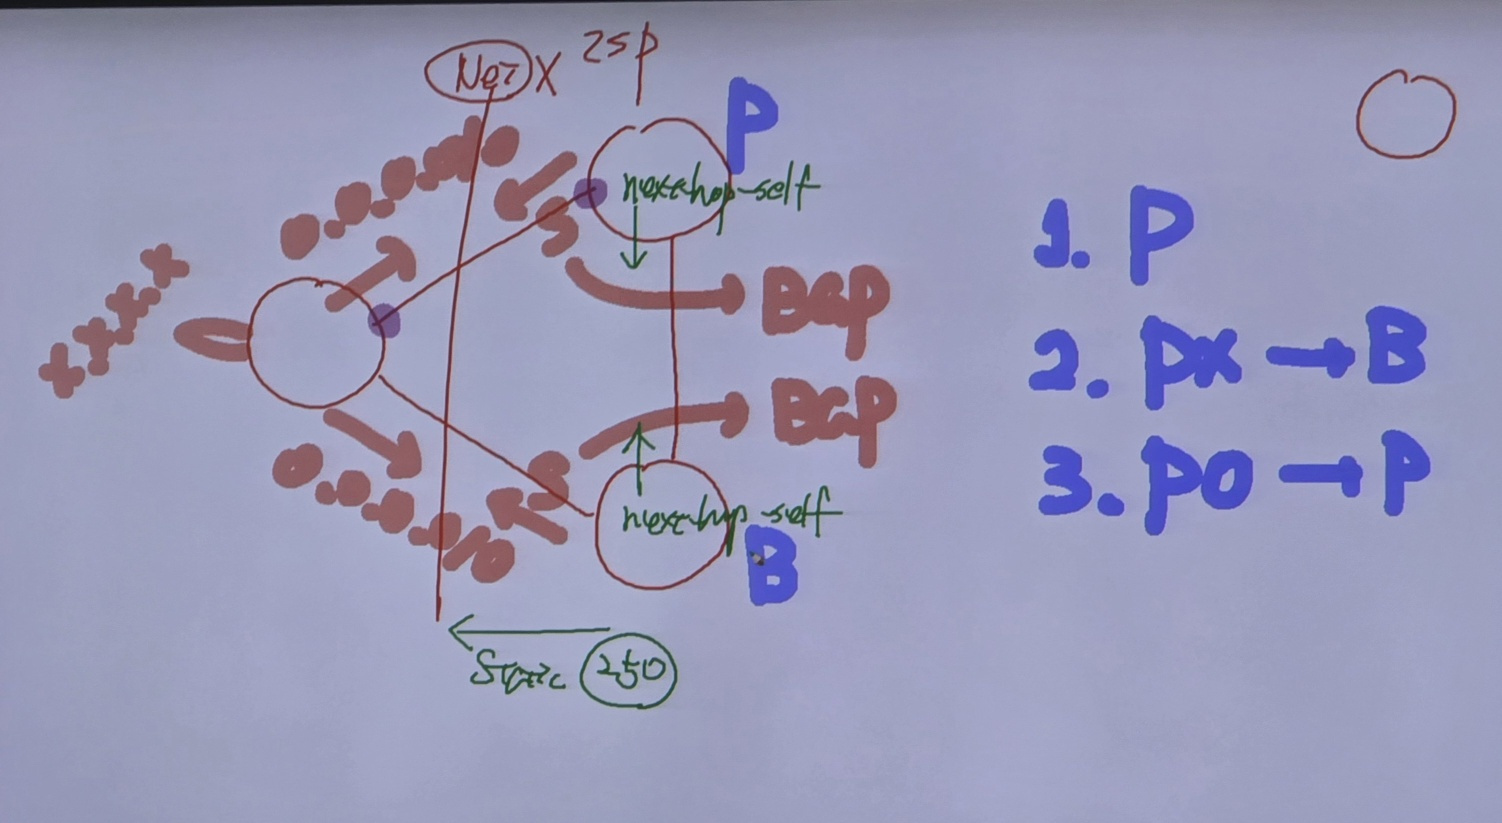 25P
X
P
nexthop-self
0.0.0.0/0
S
x.x.x.x
BGP
BGP
0.0.0.0/0
S
nexthop-self
B
Static 250
1. P
2. PX → B
3. PO → P